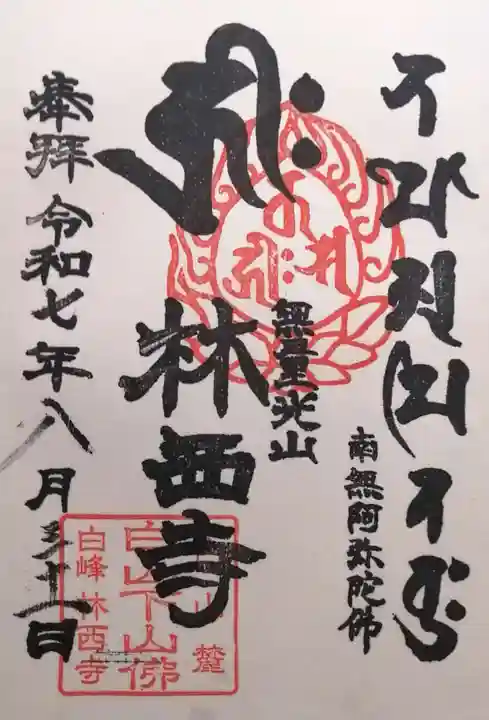 南無阿弥陀佛
無量光山
𑖮𑖿𑖨𑖱𑖾
林西寺
奉拝 令和七年八月十一日
山麓
白山下山佛
白峰林西寺